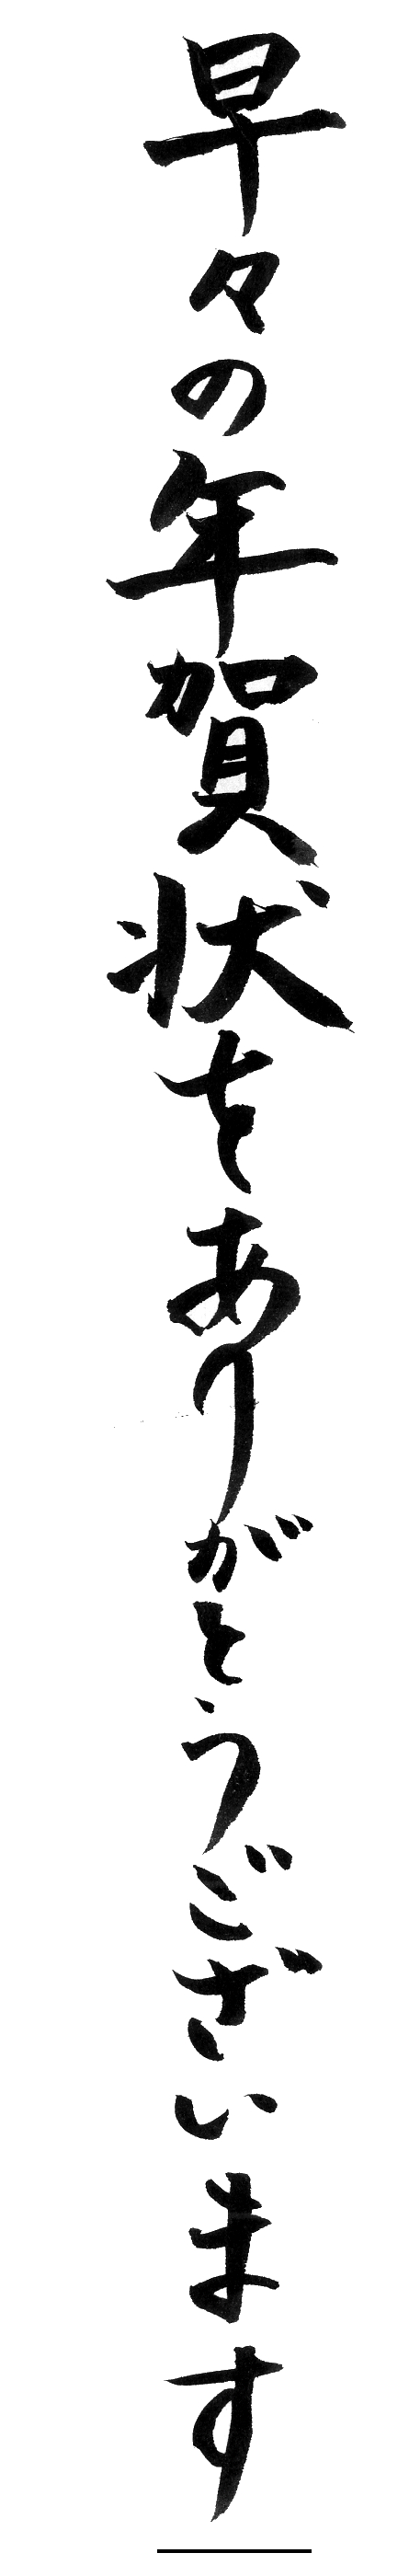 早々の年賀状をありがとうございます